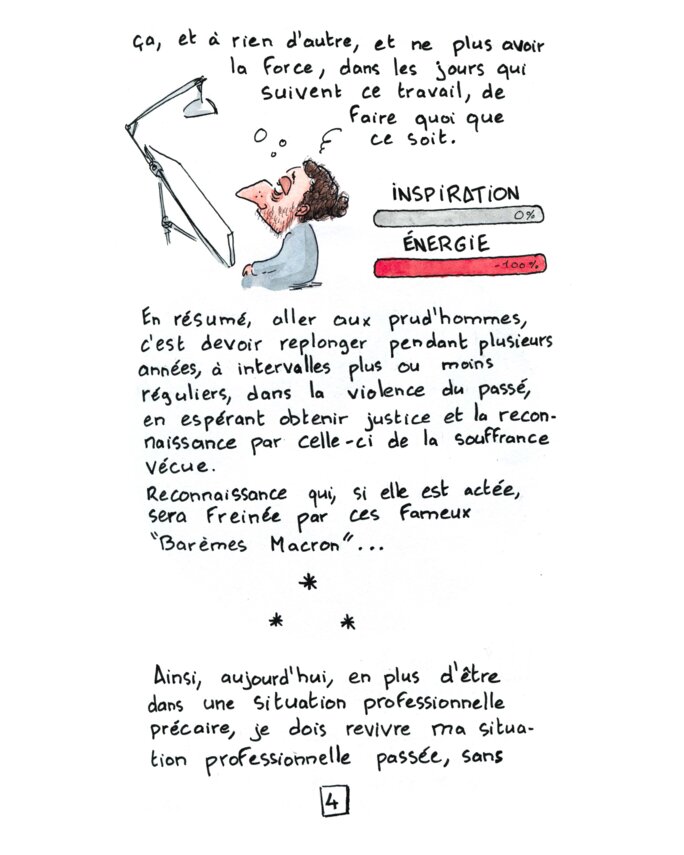 ça, et à rien d'autre, et ne plus avoir
la force, dans les jours qui
suivent ce travail, de
faire quoi que
ce soit.
INSPIRATION
0%
ÉNERGIE
-100%
En résumé, aller aux prud'hommes,
c'est devoir replonger pendant plusieurs
années, à intervalles plus ou moins
réguliers, dans la violence du passé,
en espérant obtenir justice et la recon-
naissance par celle-ci de la souffrance
vécue.
Reconnaissance qui, si elle est actée,
sera freinée par ces fameux
"Barèmes Macron"...
*
* *
Ainsi, aujourd'hui, en plus d'être
dans une situation professionnelle
précaire, je dois revivre ma situa-
tion professionnelle passée, sans
4